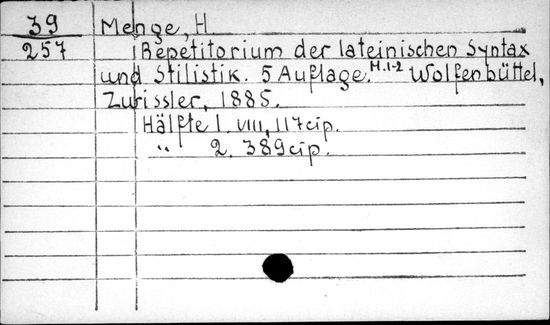 39 Menge, H
257 Repetitorium der lateinischen Syntax
und Stilistik. 5 Auflage. H.1-2 Wolfenbüttel,
Zwissler, 1885.
Hälfte 1. VIII, 117 cтр.
" 2. 389 cтр.